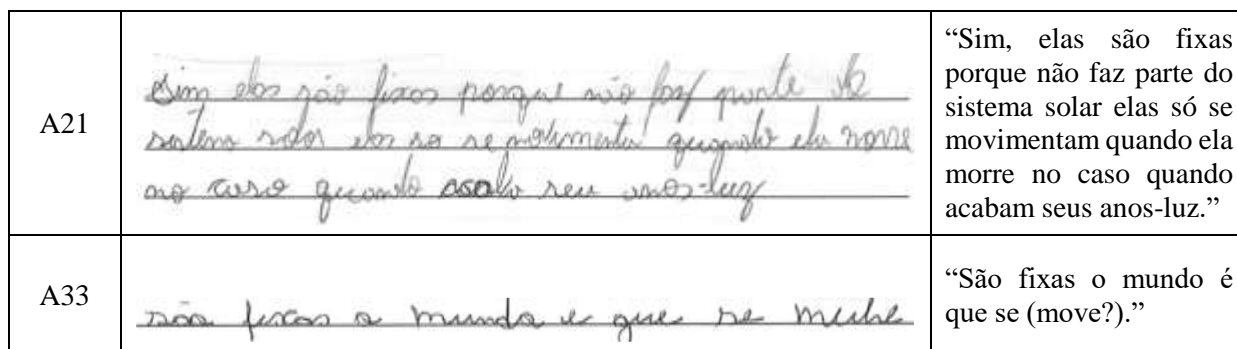 A21
Sim elas são fixas porque não faz parte do
sistema solar elas so se movimenta quando ela morre
no caso quando acaba seu anos-luz
“Sim, elas são fixas
porque não faz parte do
sistema solar elas só se
movimentam quando ela
morre no caso quando
acabam seus anos-luz.”
A33
são fixas o mundo e que se
“São fixas o mundo é
que se (move?).”